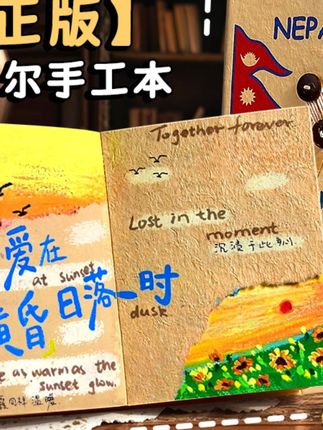 正版】
尔手工本
NEPA
Together forever
Lost in the
moment
沉浸于此刻
爱在
at sunset
黄昏日落时
dusk
as warm as the
sunset glow.
同样温暖